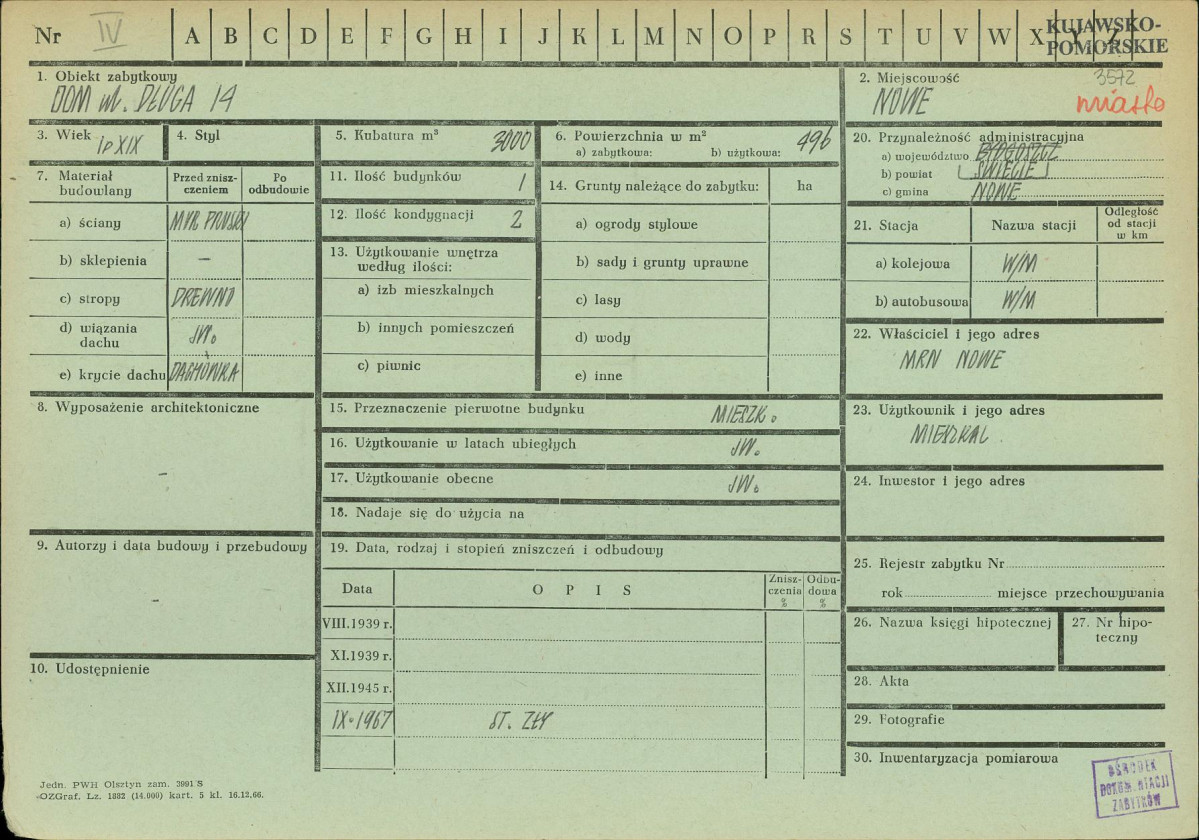 Nr IV A B C D E F G H I J K L M N O P R S T U V W X Y Z
KUJAWSKO-
POMORSKIE
1. Obiekt zabytkowy
DOM ul. DŁUGA 14
2. Miejscowość
3572
NOWE
miasto
3. Wiek 1p XIX
4. Styl
5. Kubatura m³ 3000
6. Powierzchnia w m² 496
a) zabytkowa: b) użytkowa:
7. Materiał
budowlany
Przed znisz-
czeniem
Po
odbudowie
a) ściany MUR PRUSKI
b) sklepienia —
c) stropy DREWNO
d) wiązania
dachu JW.
e) krycie dachu DACHÓWKA
8. Wyposażenie architektoniczne
–
9. Autorzy i data budowy i przebudowy
–
10. Udostępnienie
11. Ilość budynków 1
12. Ilość kondygnacji 2
13. Użytkowanie wnętrza
według ilości:
a) izb mieszkalnych
b) innych pomieszczeń
c) piwnic
14. Grunty należące do zabytku: ha
a) ogrody stylowe
b) sady i grunty uprawne
c) lasy
d) wody
e) inne
15. Przeznaczenie pierwotne budynku MIESZK.
16. Użytkowanie w latach ubiegłych JW.
17. Użytkowanie obecne JW.
18. Nadaje się do użycia na
19. Data, rodzaj i stopień zniszczeń i odbudowy
Data
O P I S
Znisz-
czenia
%
Odbu-
dowa
%
VIII.1939 r.
XI.1939 r.
XII.1945 r.
IX.1967 ST. ZŁY
20. Przynależność administracyjna
a) województwo BYDGOSZCZ
b) powiat ŚWIECIE
c) gmina NOWE
21. Stacja
Nazwa stacji
Odległość
od stacji
w km
a) kolejowa W/M
b) autobusowa W/M
22. Właściciel i jego adres
MRN NOWE
23. Użytkownik i jego adres
MIESZKAL.
24. Inwestor i jego adres
25. Rejestr zabytku Nr
rok miejsce przechowywania
26. Nazwa księgi hipotecznej
27. Nr hipo-
teczny
28. Akta
29. Fotografie
30. Inwentaryzacja pomiarowa
OŚRODEK
DOKUMENTACJI
ZABYTKÓW
Jedn. PWH Olsztyn zam. 3991 S
OZGraf. Lz. 1882 (14.000) kart. 5 kl. 16.12.66.